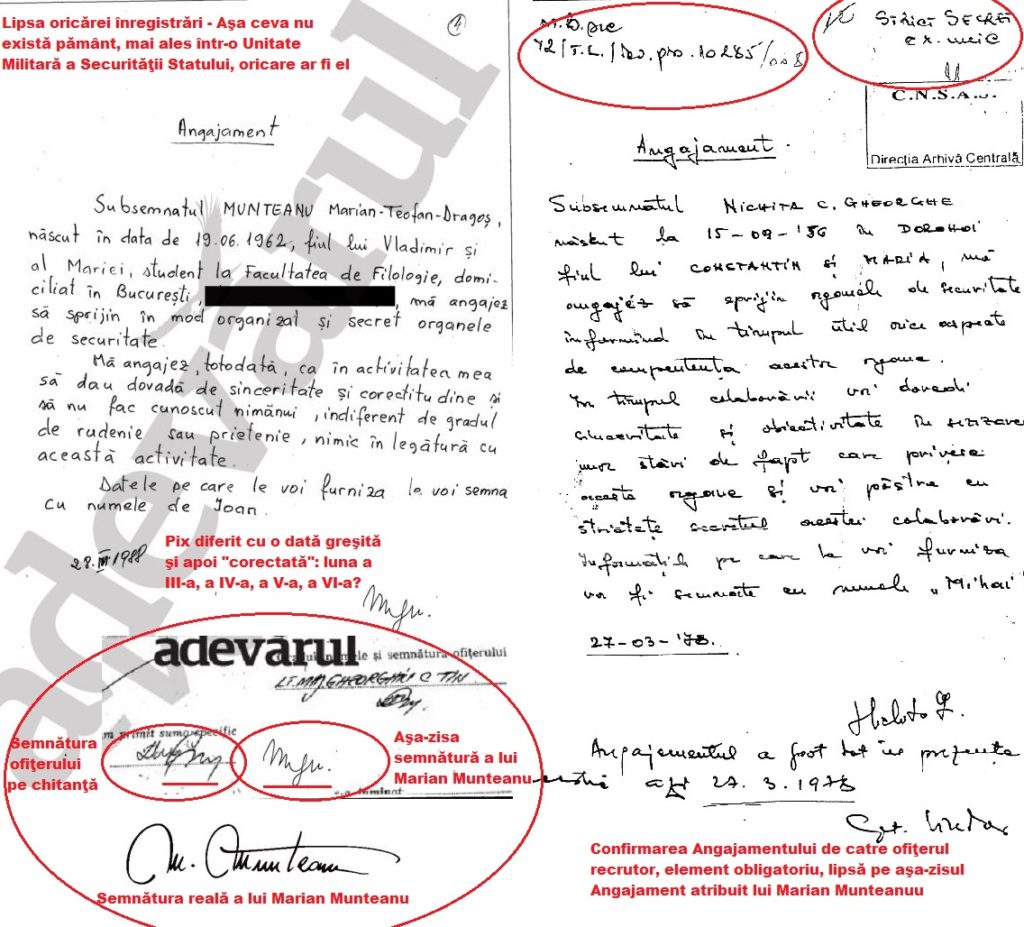 Lipsa oricărei înregistrări - Aşa ceva nu
există pământ, mai ales într-o Unitate
Militară a Securităţii Statului, oricare ar fi el
Angajament
Subsemnatul MUNTEANU Marian-Teofan-Dragoş,
născut în data de 19.06.1962, fiul lui Vladimir şi
al Mariei, student la Facultatea de Filologie, domi-
ciliat în Bucureşti, , mă angajez
să sprijin în mod organizat şi secret organele
de securitate.
Mă angajez, totodată, ca în activitatea mea
să dau dovadă de sinceritate şi corectitudine şi
să nu fac cunoscut nimănui, indiferent de gradul
de rudenie sau prietenie, nimic în legătură cu
această activitate.
Datele pe care le voi furniza le voi semna
cu numele de Ioan.
28. III 1988
Pix diferit cu o dată greşită
şi apoi "corectată": luna a
III-a, a IV-a, a V-a, a VI-a?
adevărul
adevărul
numele şi semnătura ofiţerului
LT. MAJ. GHEORGHIU C-TIN
m primit suma specific
Semnătura
ofiţerului
pe chitanţă
Aşa-zisa
semnătură a lui
Marian Munteanu
M. Munteanu
Semnătura reală a lui Marian Munteanu
72/T.L./ 10285/
Strict SECRET
ex. unic
C.N.S.A.S.
Direcţia Arhivă Centrală
Angajament.
Subsemnatul NICHITA C. GHEORGHE
născut la 15-09-'56 în DOROHOI
fiul lui CONSTANTIN şi MARIA, mă
angajez să sprijin organele de securitate
informînd în timpul util orice aspecte
de competenţa acestor organe.
În timpul colaborării voi dovedi
sinceritate şi obiectivitate în sesizarea
unor stări de fapt care privesc
aceste organe şi voi păstra cu
stricteţe secretul acestei colaborări.
Informaţiile pe care le voi furniza
vor fi semnate cu numele „Mihai"
27-03-'78.
Angajamentul a fost dat în prezenţa
27.3.1978
Confirmarea Angajamentului de catre ofiţerul
recrutor, element obligatoriu, lipsă pe aşa-zisul
Angajament atribuit lui Marian Munteanuu